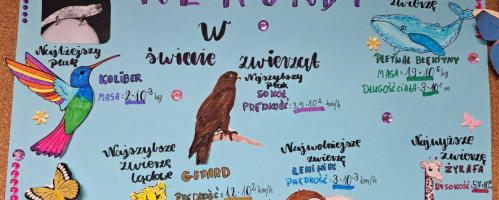 REKORDY
W
świecie zwierząt
zwierzę
Najlżejszy
ptak
KOLIBER
MASA: 2·10⁻³ kg
Najszybszy
ptak
SOKÓŁ
PRĘDKOŚĆ: 3,9·10² km/h
PŁETWAL BŁĘKITNY
MASA: 1,9·10⁵ kg
DŁUGOŚĆ CIAŁA: 3·10¹ m
Najszybsze
zwierzę
lądowe
GEPARD
PRĘDKOŚĆ: 1,2·10² km/h
Najwolniejsze
zwierzę
LENIWIEC
PRĘDKOŚĆ: 3·10⁻³ km/h
Najwyższe
zwierzę
ŻYRAFA
WYSOKOŚĆ: 5,7·10⁰